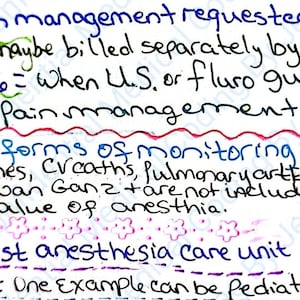 management requeste
maybe billed separately by
= when U.S. or fluro gu
Pain management
forms of monitoring
nes, CV caths, Pulmonary art
Swan Ganz + are not includ
value of anesthia.
st anesthesia care unit
: One Example can be Pediat